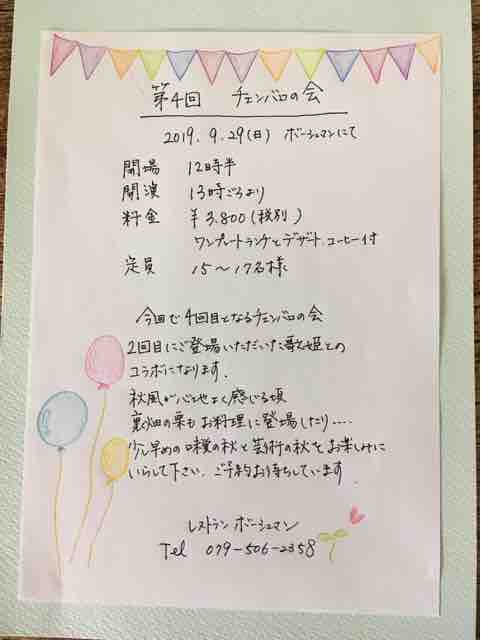 第4回 チェンバロの会
2019. 9. 29(日) ボーシュマンにて
開場 12時半
開演 13時ごろより
料金 ¥3.800(税別)
ワンプレートランチとデザート、コーヒー付
定員 15〜17名様
今回で4回目となるチェンバロの会
2回目にご登場いただいた歌姫との
コラボになります。
秋風が心地よく感じる頃
裏畑の栗もお料理に登場したり....
少し早めの味覚の秋と芸術の秋をお楽しみに
いらして下さい。ご予約お待ちしています。
レストラン ボーシュマン
Tel 079-506-2358